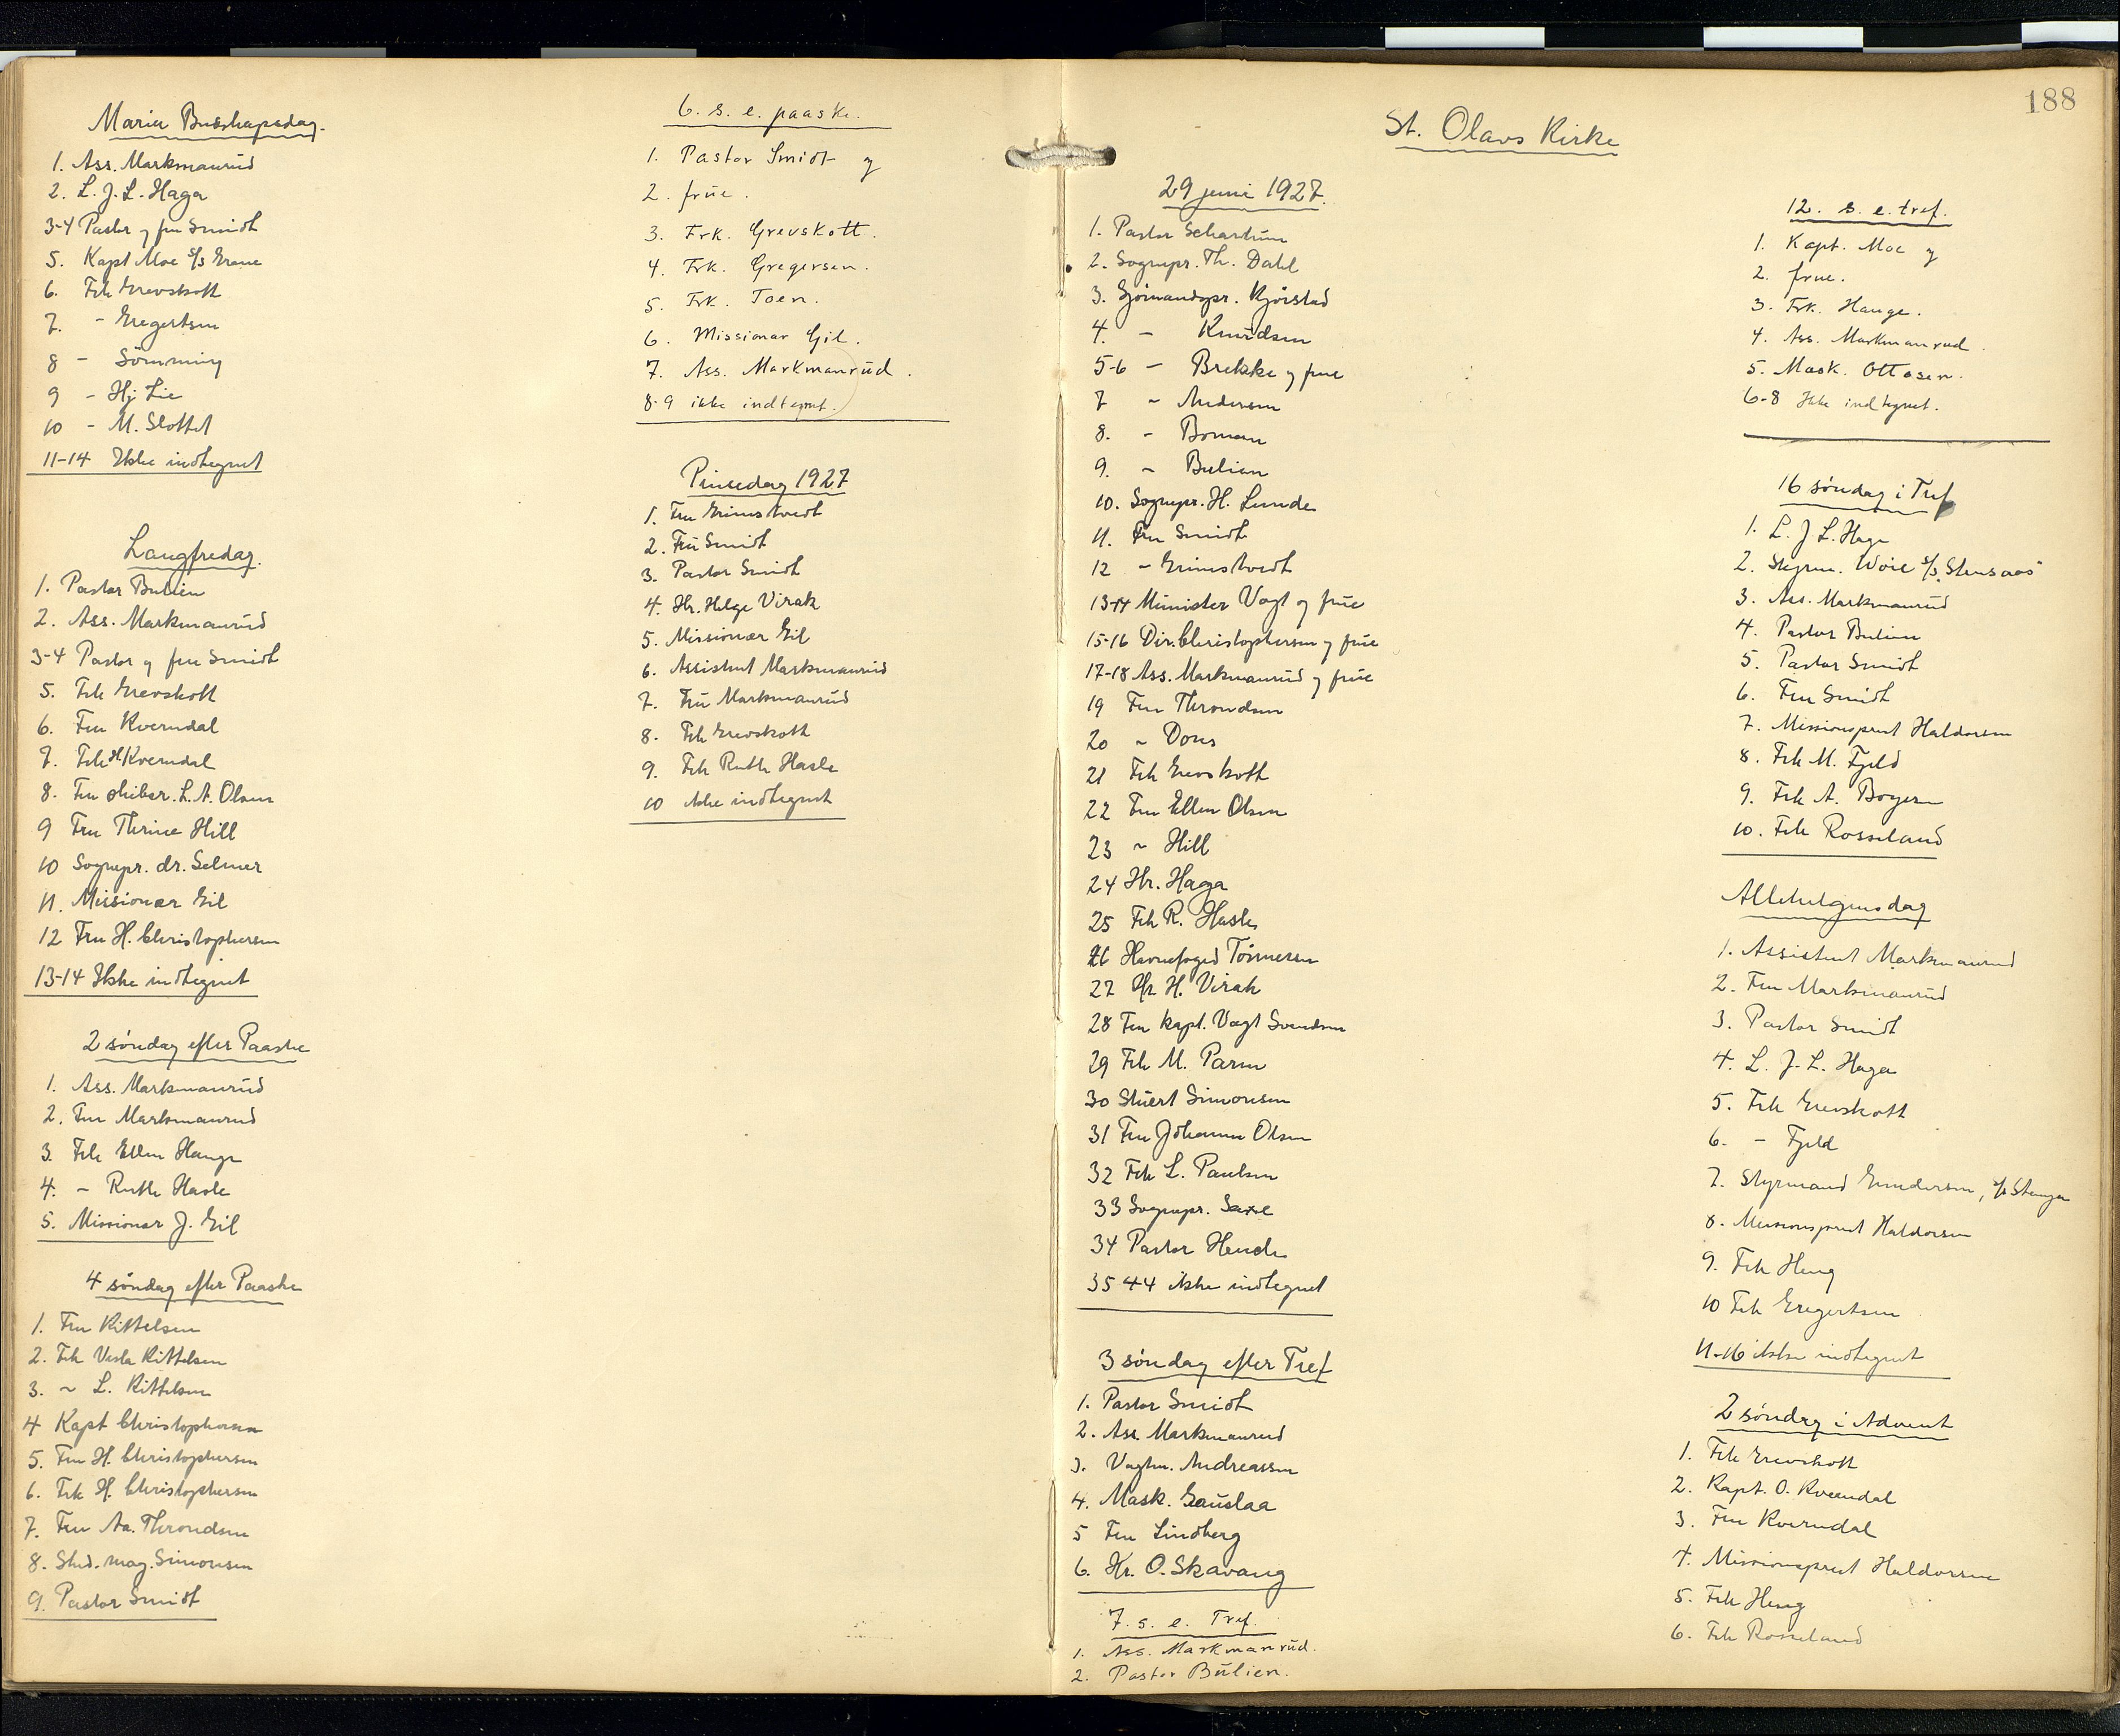 Mariæ Budskapsdag.
1. Ass. Markmanrud
2. L. J. L. Haga
3-4 Pastor og fru Smidt
5. Kapt Moe S/S Grane
6. Frk Grevskott
7. - Gregertsen
8 - Sömming
9 - Hj. Lie
10 - M. Slottet
11-14 Ikke indtegnet
Langfredag.
1. Pastor Bulien
2. Ass. Markmanrud
3-4 Pastor og fru Smidt
5. Frk Grevskott
6. Fru Kverndal
7. Frk H Kverndal
8. Fru skibsr. L. A. Olsen
9 Fru Thrine Hill
10 Sognepr. dr. Selmer
11. Missionær Gil
12 Fru H. Christophersen
13-14 Ikke indtegnet
2 søndag efter Paaske
1. Ass. Markmanrud
2. Fru Markmanrud
3. Frk Ellen Hauge
4. - Ruth Hasle
5. Missionær J. Gil
4 søndag efter Paaske
1. Fru Kittelsen
2. Frk Vesla Kittelsen
3. ~ L. Kittelsen
4 Kapt Christophersen
5. Fru H. Christophersen
6. Frk H. Christophersen
7. Fru Aa. Throndsen
8. Stud. mag. Simonsen
9. Pastor Smidt
6. s. e. paaske.
1. Pastor Smidt og
2. frue.
3. Frk. Grevskott.
4. Frk. Gregersen.
5. Frk. Toen.
6. Missionær Gil.
7. Ass. Markmanrud.
8-9 ikke indtegnet.
Pinsedag 1927
1. Fru Grimstvedt
2. Fru Smidt
3. Pastor Smidt
4. Hr. Helge Virak
5. Missionær Gil
6. Assistent Markmanrud
7. Fru Markmanrud
8. Frk Grevskott
9. Frk Ruth Hasle
10 ikke indtegnet
188
St. Olavs Kirke
29 juni 1927.
1. Pastor Schartum
2. Sognepr. Th. Dahl
3. Sjömandspr. Kjörstad
4. - Knudsen
5-6 - Brekke og frue
7 - Andersen
8. - Boman
9. - Bulien
10. Sognepr. H. Lunde
11. Fru Smidt
12 - Grimstvedt
13-14 Minister Vogt og frue
15-16 Dir. Christophersen og frue
17-18 Ass. Markmanrud og frue
19 Fru Throndsen
20 ~ Dons
21 Frk Grevskott
22 Fru Ellen Olsen
23 ~ Hill
24 Hr. Haga
25 Frk R. Hasle
26 Havnefoged Tönnesen
27 Hr H. Virak
28 Fru kapt. Vogt Svendsen
29 Frk M. Parm
30 Stuert Simonsen
31 Fru Johanne Olsen
32 Frk L. Paulsen
33 Sognepr. Saxe
34 Pastor Hende
35-44 ikke indtegnet
3 søndag efter Tref
1. Pastor Smidt
2. Ass. Markmanrud
3. Vagtm. Andreassen
4. Mask. Gauslaa
5 Fru Lindberg
6. Hr. O. Skavang
7. s. e. Tref.
1. Ass. Markmanrud.
2. Pastor Bulien.
12. s. e. tref.
1. Kapt. Moe og
2. frue.
3. Frk. Hauge.
4. Ass. Markmanrud.
5. Mask. Ottosen.
6-8 Ikke indtegnet.
16 søndag i Tref
1. L. J. L. Haga
2. Styrm. Woie S/S Stensaas
3. Ass. Markmanrud
4. Pastor Bulien
5. Pastor Smidt
6. Fru Smidt
7. Missionsprest Haldorsen
8. Frk M. Fjeld
9. Frk A. Boyesen
10. Frk Rosseland
Allehelgensdag
1. Assistent Markmanrud
2. Fru Markmanrud
3. Pastor Smidt
4. L. J. L. Haga
5. Frk Grevskott
6. - Fjeld
7. Styrmand Gundersen, S/S
8. Missionsprest Haldorsen
9. Frk Heng
10 Frk Gregertsen
11-16 ikke indtegnet
2 søndag i Advent
1. Frk Grevskott
2. Kapt. O. Kverndal
3. Fru Kverndal
4. Missionsprest Haldorsen
5. Frk Heng
6. Frk Rosseland